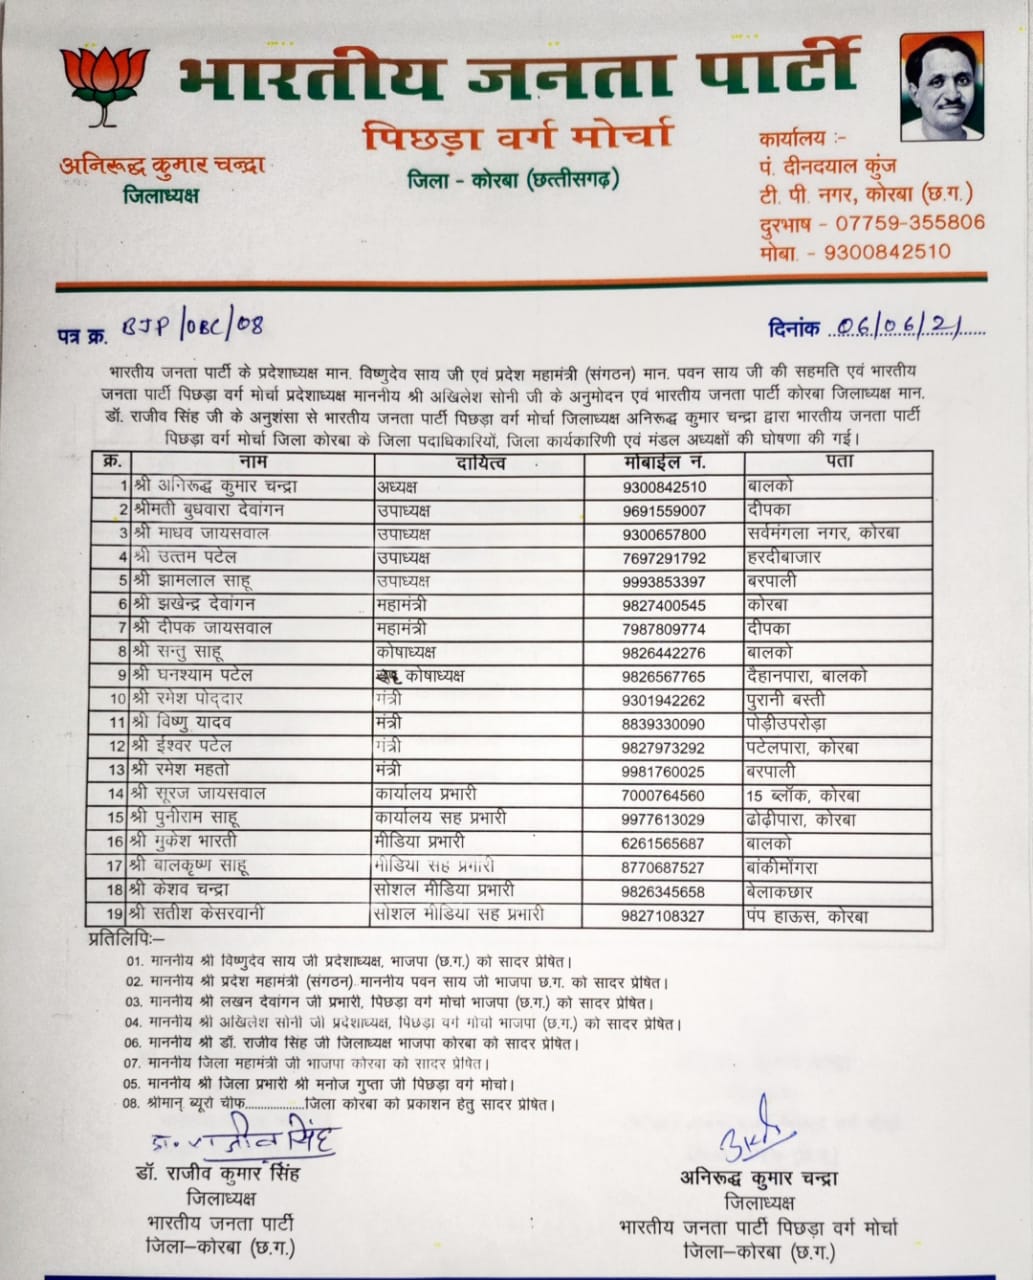 भारतीय जनता पार्टी
पिछड़ा वर्ग मोर्चा
जिला - कोरबा (छत्तीसगढ़)
अनिरूद्ध कुमार चन्द्रा
जिलाध्यक्ष
कार्यालय :-
पं. दीनदयाल कुंज
टी. पी. नगर, कोरबा (छ.ग.)
दुरभाष - 07759-355806
मोबा. - 9300842510
पत्र क्र. BJP/OBC/08
दिनांक 06/06/21
भारतीय जनता पार्टी के प्रदेशाध्यक्ष मान. विष्णुदेव साय जी एवं प्रदेश महामंत्री (संगठन) मान. पवन साय जी की सहमति एवं भारतीय
जनता पार्टी पिछड़ा वर्ग मोर्चा प्रदेशाध्यक्ष माननीय श्री अखिलेश सोनी जी के अनुमोदन एवं भारतीय जनता पार्टी कोरबा जिलाध्यक्ष मान.
डॉ. राजीव सिंह जी के अनुशंसा से भारतीय जनता पार्टी पिछड़ा वर्ग मोर्चा जिलाध्यक्ष अनिरूद्ध कुमार चन्द्रा द्वारा भारतीय जनता पार्टी
पिछड़ा वर्ग मोर्चा जिला कोरबा के जिला पदाधिकारियों, जिला कार्यकारिणी एवं मंडल अध्यक्षों की घोषणा की गई।
क्र. नाम दायित्व मोबाईल न. पता
1 श्री अनिरूद्ध कुमार चन्द्रा अध्यक्ष 9300842510 बालको
2 श्रीमती बुधवारा देवांगन उपाध्यक्ष 9691559007 दीपका
3 श्री माधव जायसवाल उपाध्यक्ष 9300657800 सर्वमंगला नगर, कोरबा
4 श्री उत्तम पटेल उपाध्यक्ष 7697291792 हरदीबाजार
5 श्री झामलाल साहू उपाध्यक्ष 9993853397 बरपाली
6 श्री झखेन्द्र देवांगन महामंत्री 9827400545 कोरबा
7 श्री दीपक जायसवाल महामंत्री 7987809774 दीपका
8 श्री सन्तु साहू कोषाध्यक्ष 9826442276 बालको
9 श्री घनश्याम पटेल कोषाध्यक्ष 9826567765 दैहानपारा, बालको
10 श्री रमेश पोद्दार मंत्री 9301942262 पुरानी बस्ती
11 श्री विष्णु यादव मंत्री 8839330090 पोड़ीउपरोड़ा
12 श्री ईश्वर पटेल मंत्री 9827973292 पटेलपारा, कोरबा
13 श्री रमेश महतो मंत्री 9981760025 बरपाली
14 श्री सूरज जायसवाल कार्यालय प्रभारी 7000764560 15 ब्लॉक, कोरबा
15 श्री पुनीराम साहू कार्यालय सह प्रभारी 9977613029 ढोढ़ीपारा, कोरबा
16 श्री मुकेश भारती मीडिया प्रभारी 6261565687 बालको
17 श्री बालकृष्ण साहू मीडिया सह प्रभारी 8770687527 बांकीमोंगरा
18 श्री केशव चन्द्रा सोशल मीडिया प्रभारी 9826345658 बेलाकछार
19 श्री सतीश केसरवानी सोशल मीडिया सह प्रभारी 9827108327 पंप हाऊस, कोरबा
प्रतिलिपिः—
01. माननीय श्री विष्णुदेव साय जी प्रदेशाध्यक्ष, भाजपा (छ.ग.) को सादर प्रेषित।
02. माननीय श्री प्रदेश महामंत्री (संगठन) माननीय पवन साय जी भाजपा छ.ग. को सादर प्रेषित।
03. माननीय श्री लखन देवांगन जी प्रभारी, पिछड़ा वर्ग मोर्चा भाजपा (छ.ग.) को सादर प्रेषित।
04. माननीय श्री अखिलेश सोनी जी प्रदेशाध्यक्ष, पिछड़ा वर्ग मोर्चा भाजपा (छ.ग.) को सादर प्रेषित।
06. माननीय श्री डॉ. राजीव सिंह जी जिलाध्यक्ष भाजपा कोरबा को सादर प्रेषित।
07. माननीय जिला महामंत्री जी भाजपा कोरबा को सादर प्रेषित।
05. माननीय श्री जिला प्रभारी श्री मनोज गुप्ता जी पिछड़ा वर्ग मोर्चा।
08. श्रीमान् ब्यूरो चीफ..................जिला कोरबा को प्रकाशन हेतु सादर प्रेषित।
डा. राजीव सिंह
डॉ. राजीव कुमार सिंह
जिलाध्यक्ष
भारतीय जनता पार्टी
जिला—कोरबा (छ.ग.)
अनिरूद्ध कुमार चन्द्रा
जिलाध्यक्ष
भारतीय जनता पार्टी पिछड़ा वर्ग मोर्चा
जिला—कोरबा (छ.ग.)